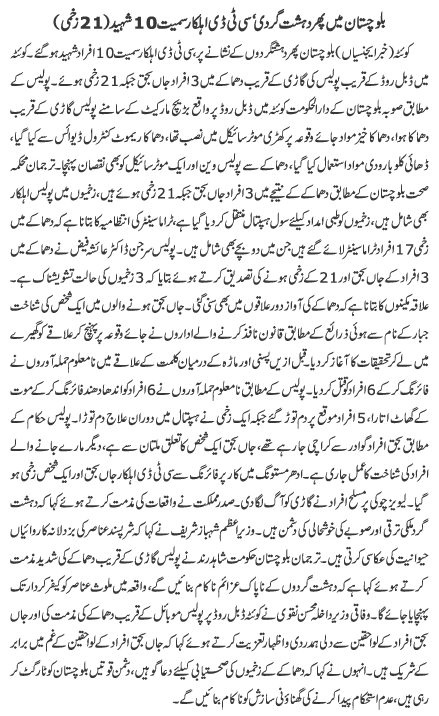 بلوچستان میں پھر دہشت گردی، سی ٹی ڈی اہلکار سمیت 10 شہید (21 زخمی)
کوئٹہ (خبر ایجنسیاں) بلوچستان پھر دہشتگردوں کے نشانے پر، سی ٹی ڈی اہلکار سمیت 10 افراد شہید ہو گئے۔ کوئٹہ
میں ڈبل روڈ کے قریب پولیس کی گاڑی کے قریب دھماکے میں 3 افراد جاں بحق جبکہ 21 زخمی ہو گئے، پولیس کے
مطابق صوبہ بلوچستان کے دارالحکومت کوئٹہ میں ڈبل روڈ پر واقع بڑیچ مارکیٹ کے سامنے پولیس گاڑی کے قریب
دھماکا ہوا، دھماکا خیز مواد جائے وقوعہ پر کھڑی موٹر سائیکل میں نصب تھا، دھماکا ریموٹ کنٹرول ڈیوائس سے کیا گیا،
ڈھائی کلو بارودی مواد استعمال کیا گیا، دھماکے سے پولیس وین اور ایک موٹر سائیکل کو بھی نقصان پہنچا۔ ترجمان محکمہ
صحت بلوچستان کے مطابق دھماکے کے نتیجے میں 3 افراد جاں بحق جبکہ 21 زخمی ہوئے ہیں، زخمیوں میں پولیس اہلکار
بھی شامل ہیں، زخمیوں کو طبی امداد کیلئے سول ہسپتال منتقل کر دیا گیا ہے، ٹراما سینٹر کی انتظامیہ کا بتانا ہے کہ دھماکے میں
زخمی 17 افراد ٹراما سینٹر لائے گئے ہیں جن میں دو بچے بھی شامل ہیں۔ پولیس سرجن ڈاکٹر عائشہ فیض نے دھماکے میں
3 افراد کے جاں بحق اور 21 کے زخمی ہونے کی تصدیق کرتے ہوئے بتایا کہ 3 زخمیوں کی حالت تشویشناک ہے۔
علاقہ مکینوں کا بتانا ہے کہ دھماکے کی آواز دور علاقوں میں بھی سنی گئی۔ جاں بحق ہونے والوں میں ایک شخص کی شناخت
جبار کے نام سے ہوئی ذرائع کے مطابق قانون نافذ کرنے والے اداروں نے جائے وقوعہ پر پہنچ کر علاقے کو گھیرے
میں لے کر تحقیقات کا آغاز کر دیا۔ قبل ازیں پسنی اور ماڑہ کے درمیان کلمت کے علاقے میں نامعلوم حملہ آوروں نے
فائرنگ کر کے 6 افراد کو قتل کر دیا۔ پولیس کے مطابق نامعلوم حملہ آوروں نے 6 افراد کو اندھا دھند فائرنگ کر کے موت
کے گھاٹ اتارا، 5 افراد موقع پر دم توڑ گئے جبکہ ایک زخمی نے ہسپتال میں دوران علاج دم توڑا۔ پولیس حکام کے
مطابق جاں بحق افراد گوادر سے کراچی جا رہے تھے، جاں بحق ایک شخص کا تعلق ملتان سے ہے، دیگر مارے جانے والے
افراد کی شناخت کا عمل جاری ہے۔ ادھر مستونگ میں کار پر فائرنگ سے سی ٹی ڈی اہلکار جاں بحق اور ایک شخص زخمی ہو
گیا۔ لیویز چوکی پر مسلح افراد نے گاڑی کو آگ لگا دی۔ صدر مملکت نے واقعات کی مذمت کرتے ہوئے کہا کہ دہشت
گرد ملکی ترقی اور صوبے کی خوشحالی کی دشمن ہیں۔ وزیراعظم شہباز شریف نے کہا کہ شرپسند عناصر کی بزدلانہ کارروائیاں
حیوانیت کی عکاسی کرتی ہیں۔ ترجمان بلوچستان حکومت شاہد رند نے پولیس گاڑی کے قریب دھماکے کی شدید مذمت
کرتے ہوئے کہا ہے کہ دہشت گردوں کے ناپاک عزائم ناکام بنائیں گے، واقعہ میں ملوث عناصر کو کیفر کردار تک
پہنچایا جائے گا۔ وفاقی وزیر داخلہ محسن نقوی نے کوئٹہ ڈبل روڈ پر پولیس موبائل کے قریب دھماکے کی مذمت کی اور جاں
بحق افراد کے لواحقین سے دلی ہمدردی و اظہار تعزیت کرتے ہوئے کہا کہ جاں بحق افراد کے لواحقین کے غم میں برابر
کے شریک ہیں۔ انہوں نے کہا کہ دھماکے کے زخمیوں کی صحتیابی کیلئے دعاگو ہیں، دشمن قوتیں بلوچستان کو ٹارگٹ کر
رہی ہیں، عدم استحکام پیدا کرنے کی گھناؤنی سازش کو ناکام بنائیں گے۔